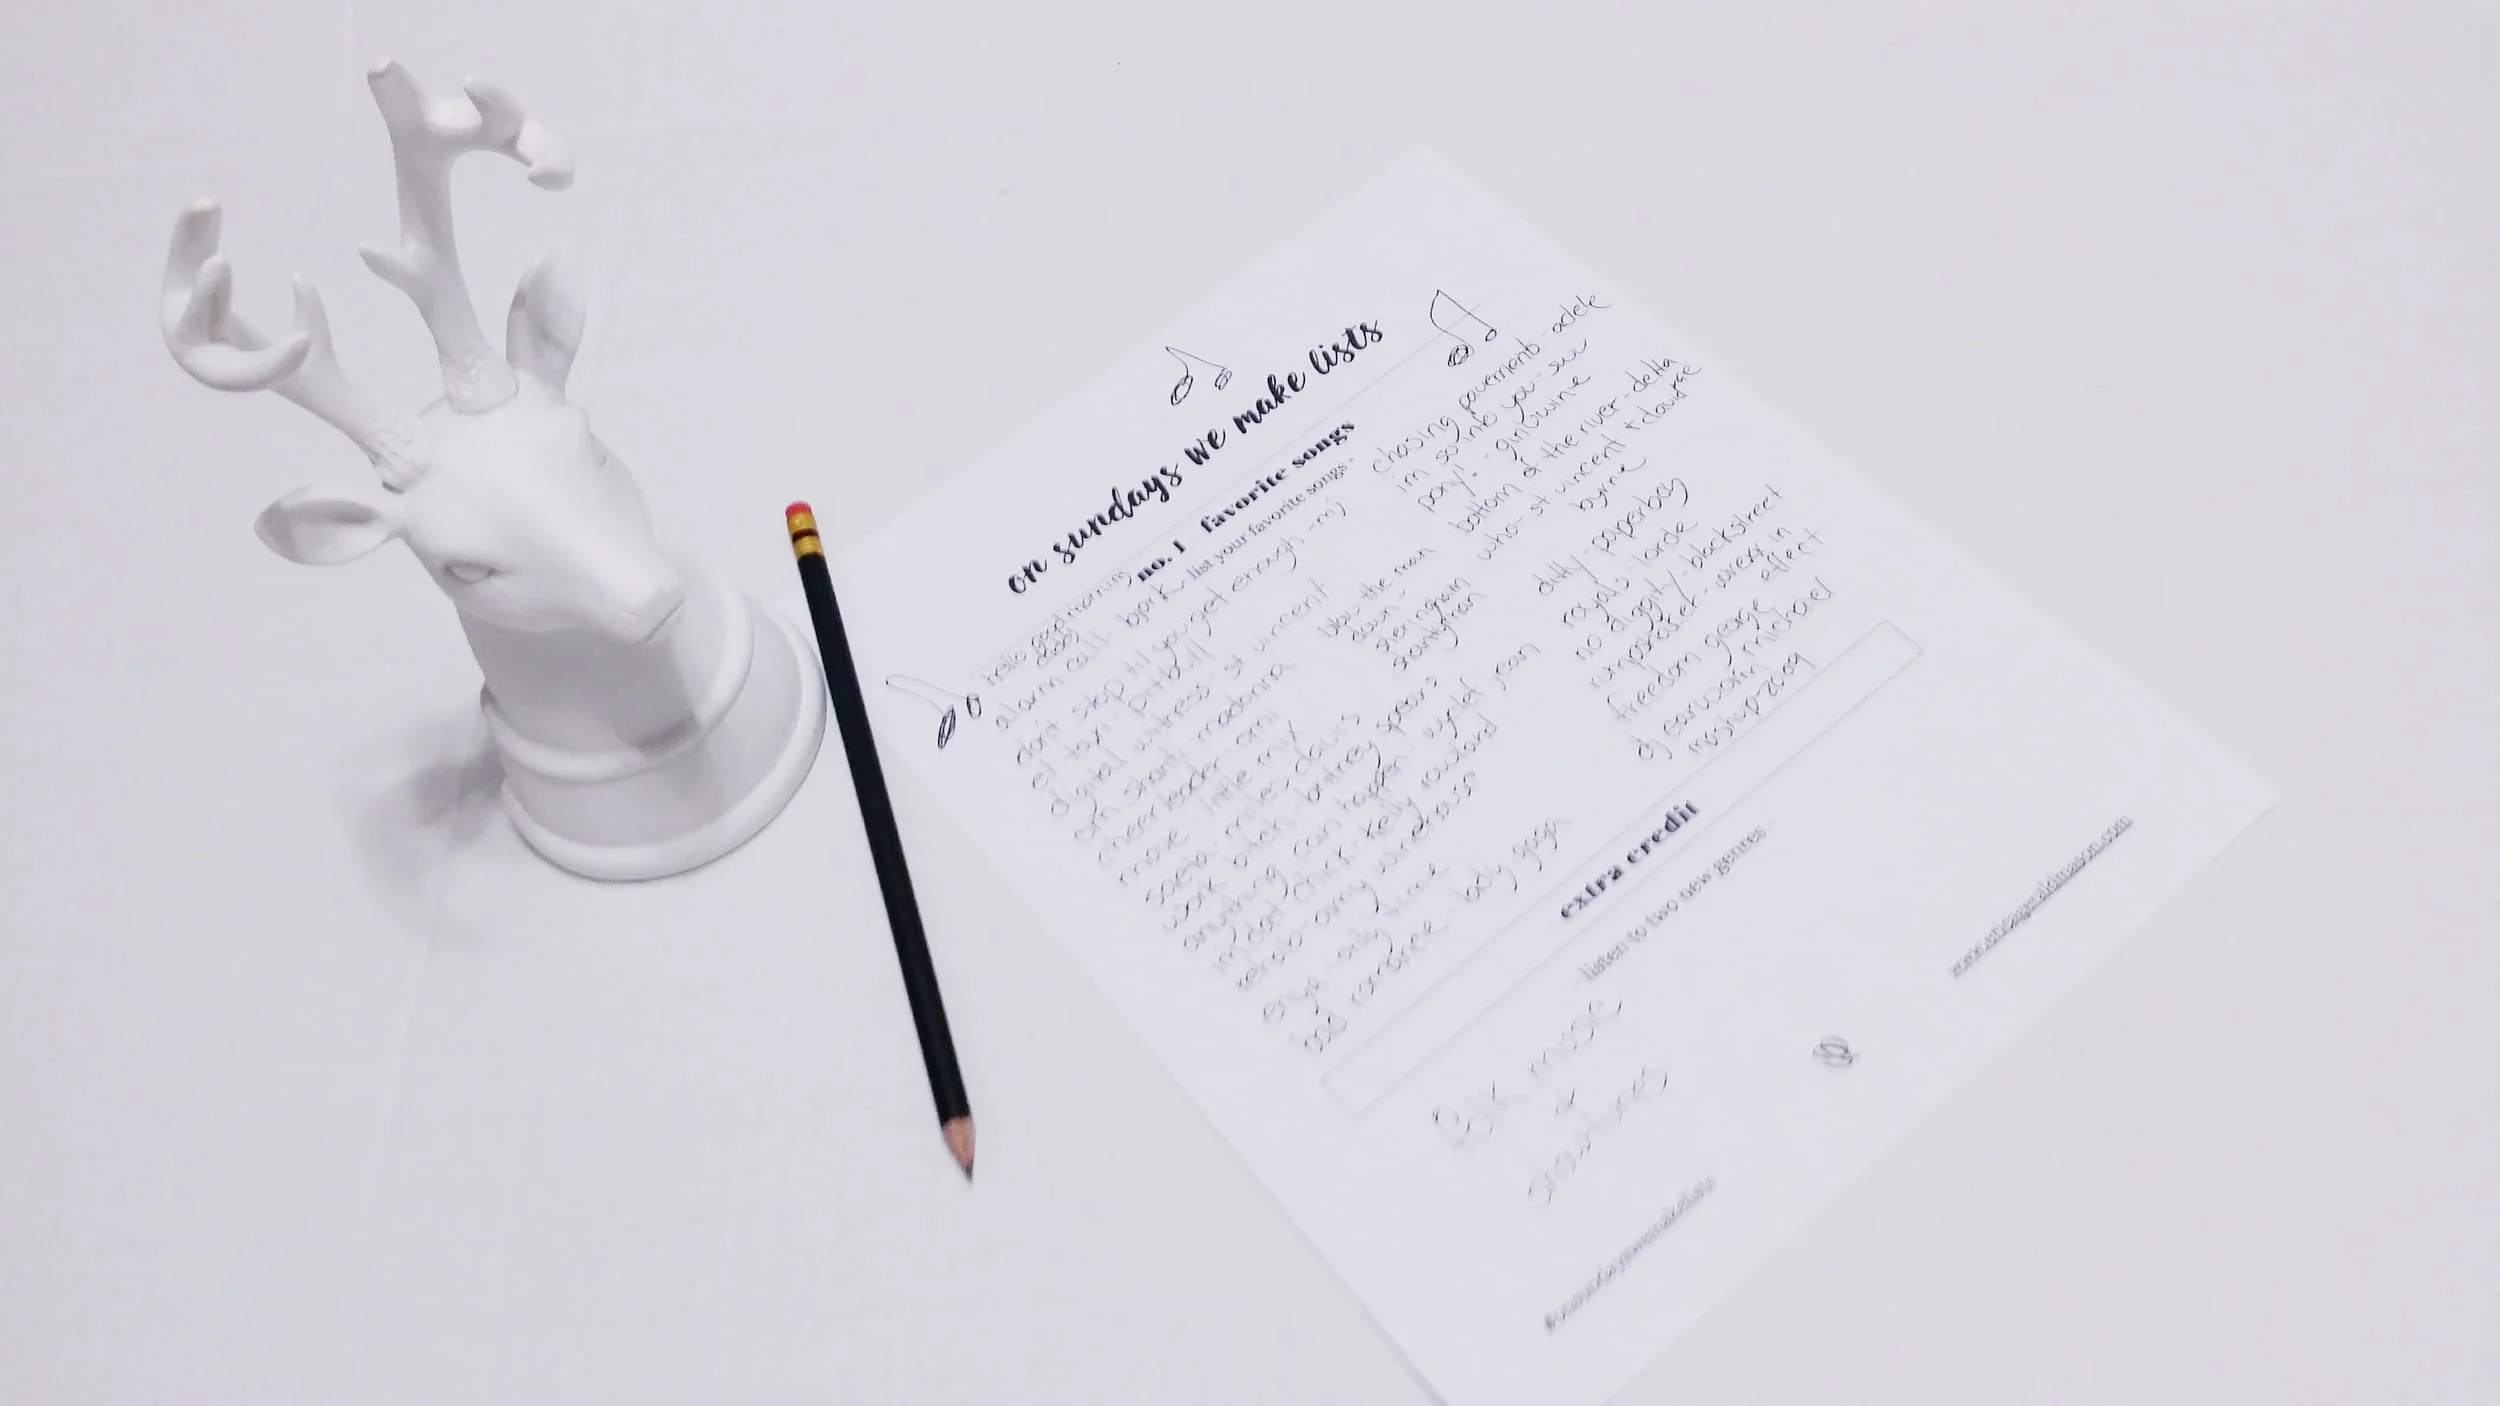 on sundays we make lists
no. 1 favorite songs
- list your favorite songs -
hello good morning
diddy
alarm call - bjork
don't stop til you get enough - mj
el taxi - pitbull
digital witness - st vincent
om shanti madonna
cheerleader omi
move - little mix
saeta - miles davis
work bitch - britney spears
anything can happen - wyclef jean
im dat chick - kelly rowland
rehab - amy winehouse
enya - only time
bad romance - lady gaga
blow the man
down -
sheringham
shantyman
chasing pavement - adele
im so into you - swv
pony - ginuwine
bottom of the river - delta rae
who - st vincent + david
byrne
ditty - paperboy
royals - lorde
no diggity - blackstreet
rumpshaker - wrexx in
effect
freedom george
michael
dj earworm
mashup - 2009
extra credit
- listen to two new genres -
folk music
+
showtunes
#onsundayswemakelists
www.ericageraldmason.com